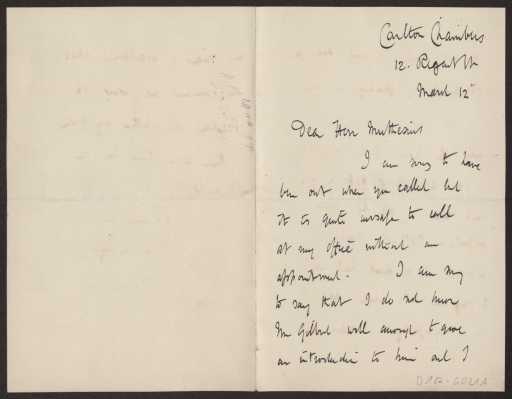 Carlton Chambers
12. Regent St
March 12
Dear Herr Muthesius
I am sorry to have
been out when you called but
it is quite unsafe to call
at my office without an
appointment. I am sorry
to say that I do not know
Mr Gilbert well enough to give
an introduction to him and I